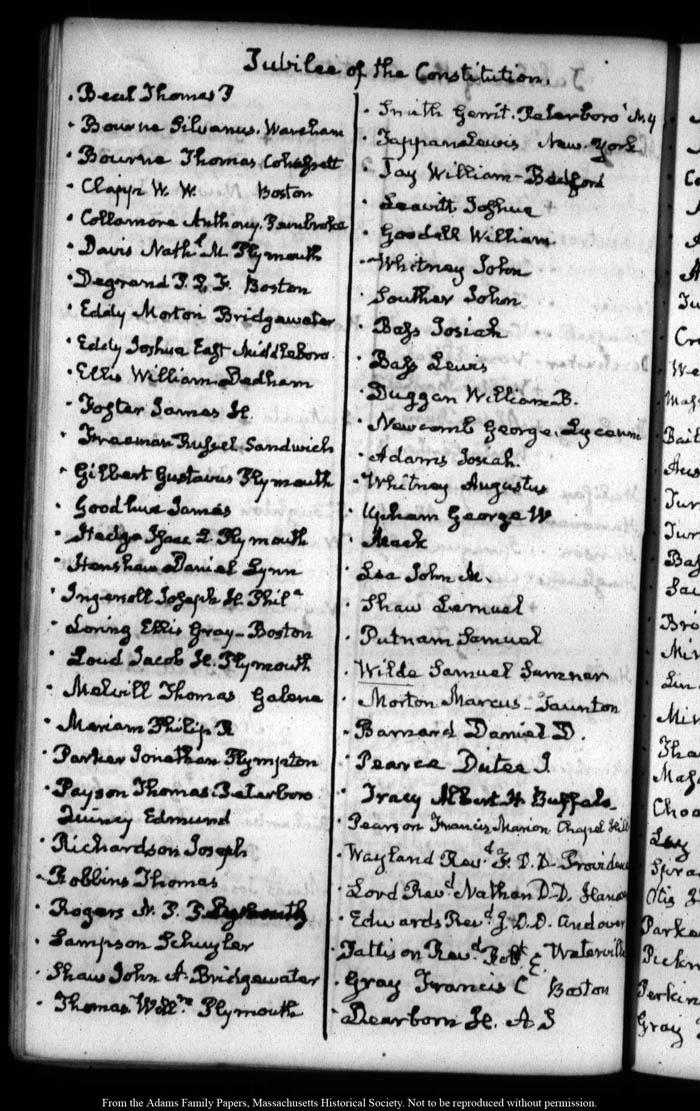 Jubilee of the Constitution.
Beal Thomas P
Bourne Silvanus. Wareham
Bourne Thomas Cohasset
Clapp W. W. Boston
Collamore Anthony. Pembroke
Davis Nathl. M. Plymouth
Degrand P. P. F. Boston
Eddy Morton Bridgewater
Eddy Joshua East Middleboro.
Ellis William Dedham
Foster James H.
Freeman Russel. Sandwich
Gilbert Gustavus Plymouth
Goodhue James
Hedge Isaac L Plymouth
Henshaw Daniel Lynn
Ingersoll Joseph H. Phila
Loring Ellis Gray- Boston
Loud Jacob H. Plymouth
Melvill Thomas Galena
Meriam Philip R
Parker Jonathan Plympton
Payson Thomas. Peterboro
Quincy Edmund
Richardson Joseph
Robbins Thomas
Rogers N. P.
Sampson Schuyler
Shaw John A. Bridgewater
Thomas Willm Plymouth
Smith Gerrit. Peterboro' N.Y
Tappan Lewis New. York
Jay William- Bedford
Leavitt Joshua
Goodell William
Whitney John
Souther John
Bass Josiah
Bass Lewis
Duggan William B.
Newcomb George. Lyceum
Adams Josiah.
Whitney Augustus
Upham George W
Mack
Lea John M.
Shaw Lemuel
Putnam Samuel
Wilde Samuel Sumner
Morton Marcus- Taunton
Barnard Daniel D.
Pearce Dutee J
Tracy Albert H Buffalo
Pearson Francis Marion Chapel Hill
Wayland Revd. F. D.D. Providence
Lord Revd Nathan D.D. Hanov
Edwards Revd. J. D.D. Andover
Pattison Revd Robt E. Waterville
Gray Francis C Boston
Dearborn H. A S
From the Adams Family Papers, Massachusetts Historical Society. Not to be reproduced without permission.